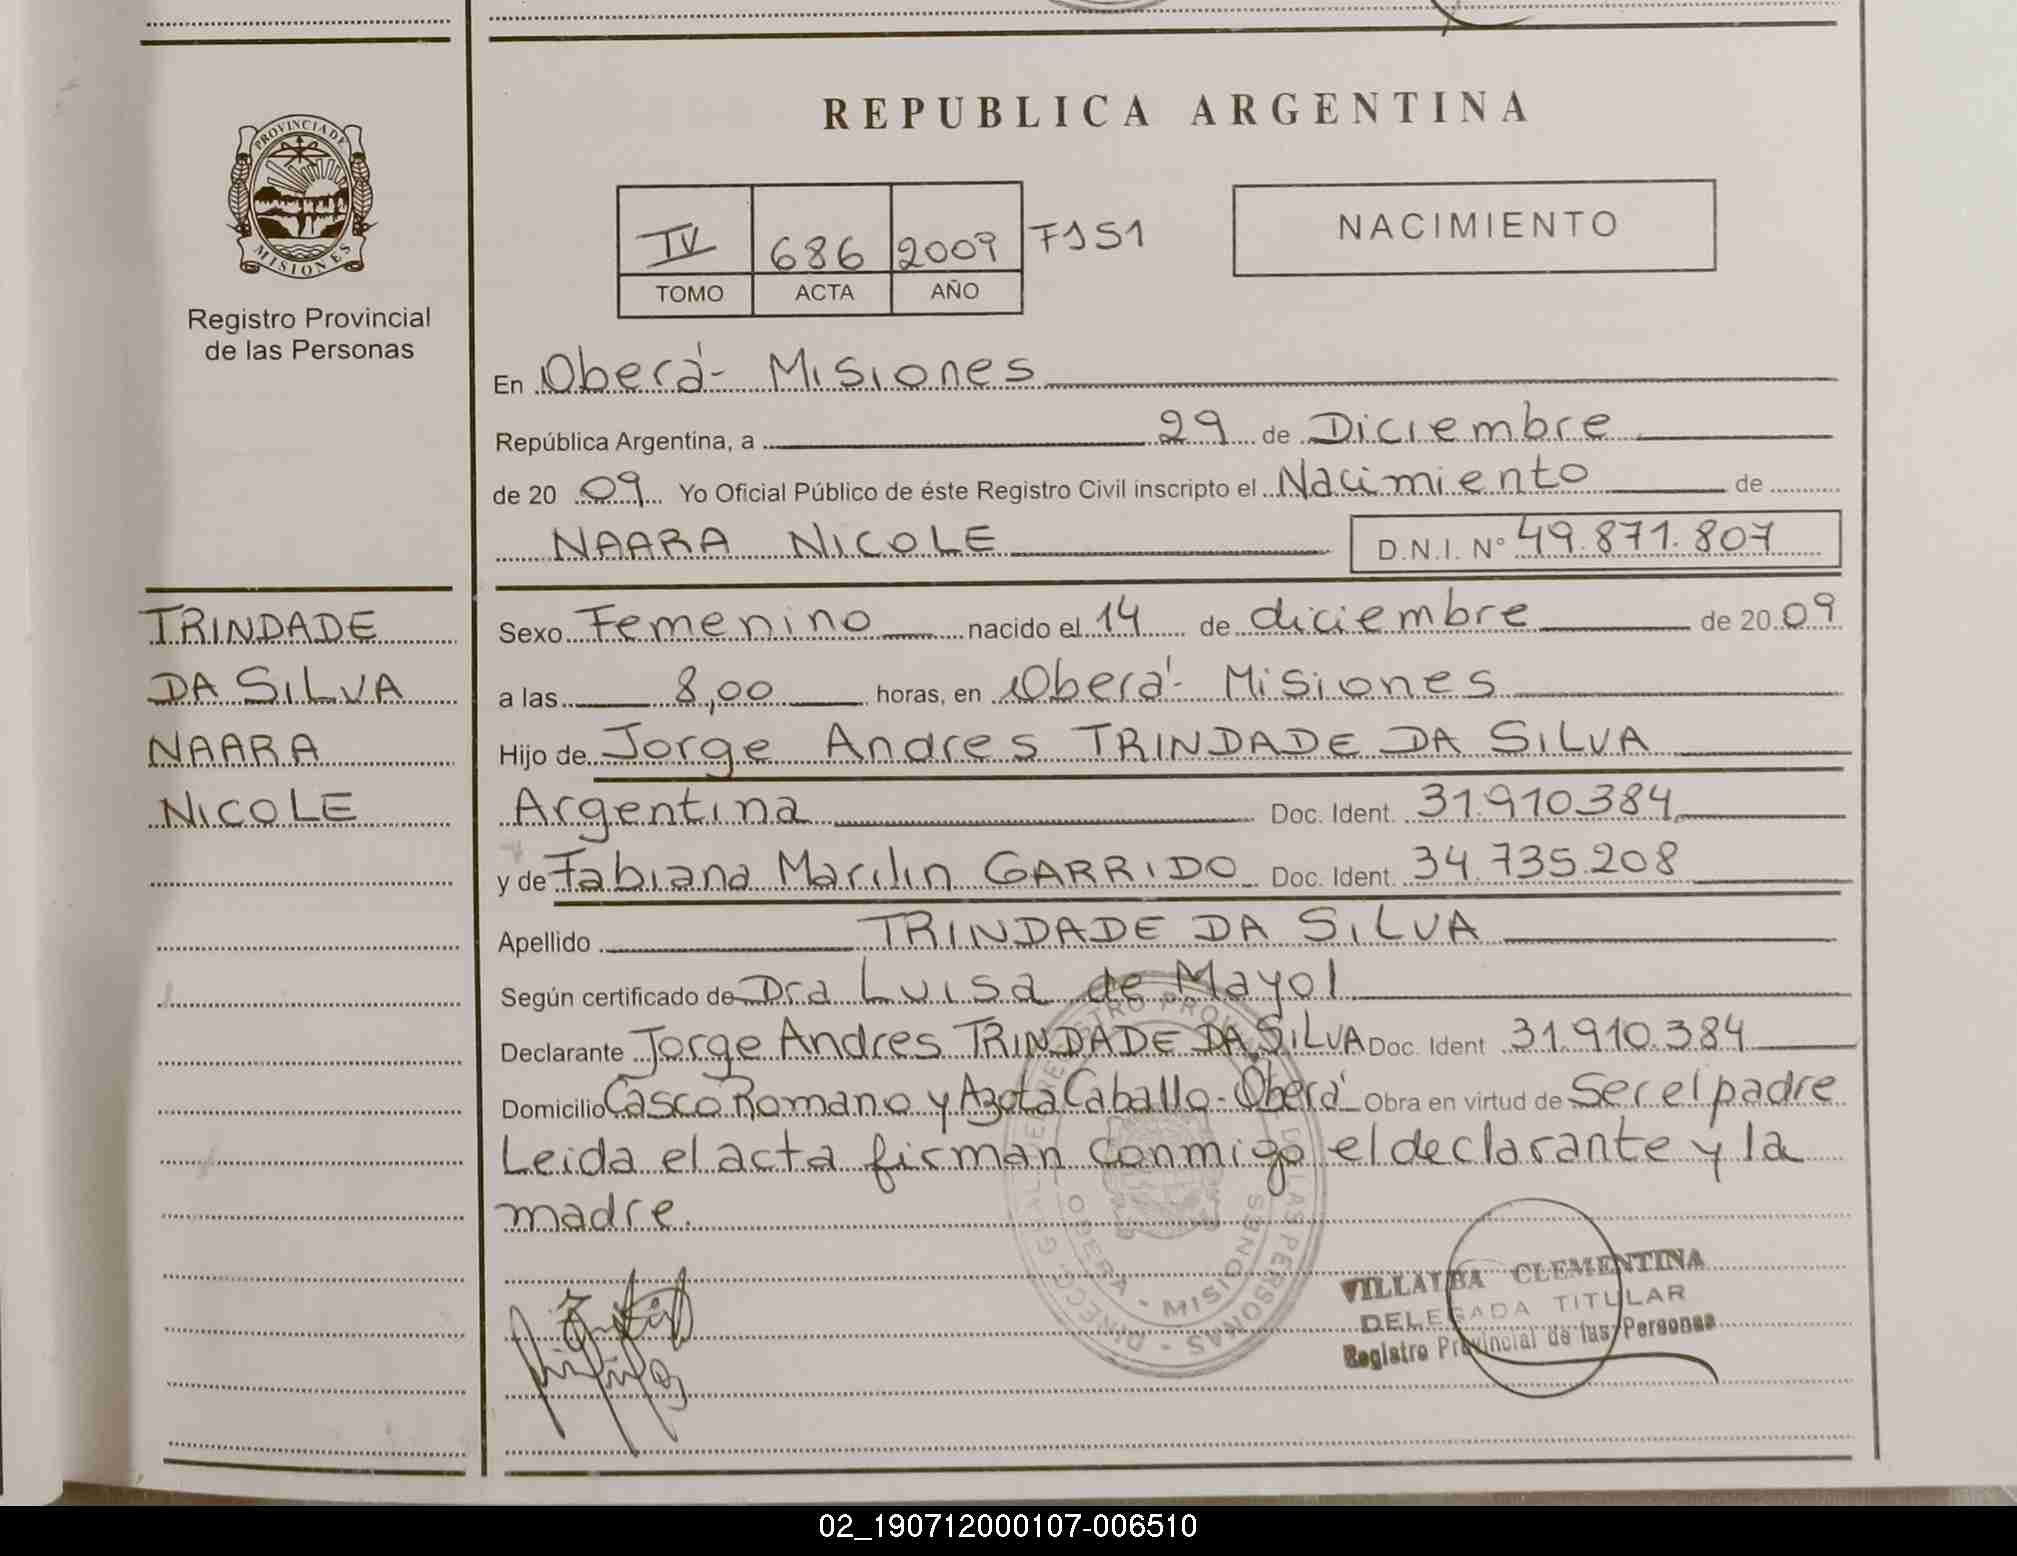 PROVINCIA DE
MISIONES
Registro Provincial
de las Personas
TRINDADE
DA SILVA
NAARA
NICOLE
REPUBLICA ARGENTINA
IV 686 2009 F151
TOMO ACTA AÑO
NACIMIENTO
En Oberá - Misiones
República Argentina, a 29 de Diciembre
de 20 09 Yo Oficial Público de éste Registro Civil inscripto el Nacimiento de
NAARA NICOLE D.N.I. Nº 49.871.807
Sexo Femenino nacido el 14 de diciembre de 20 09
a las 8,00 horas, en Oberá - Misiones
Hijo de Jorge Andres TRINDADE DA SILVA
Argentina Doc. Ident. 31.910.384
y de Fabiana Marilin GARRIDO Doc. Ident. 34.735.208
Apellido TRINDADE DA SILVA
Según certificado de Dra Luisa de Mayol
Declarante Jorge Andres TRINDADE DA SILVA Doc. Ident 31.910.384
Domicilio Casco Romano y Azota Caballo - Oberá Obra en virtud de Ser el padre
Leida el acta firman conmigo el declarante y la
madre.
OBERA - MISIONES
VILLALBA CLEMENTINA
DELEGADA TITULAR
Registro Provincial de las Personas
02_190712000107-006510